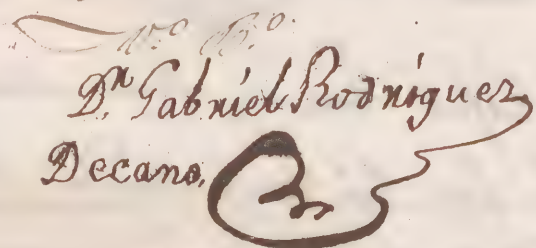 V.º B.º
Dⁿ. Gabriel Rodriguez
Decano.